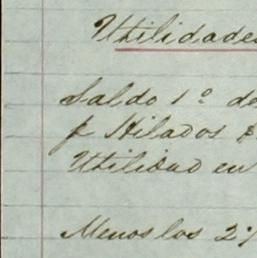 Utilidades
Saldo 1º de
p Hilados &
Utilidad en
Menos los 2%